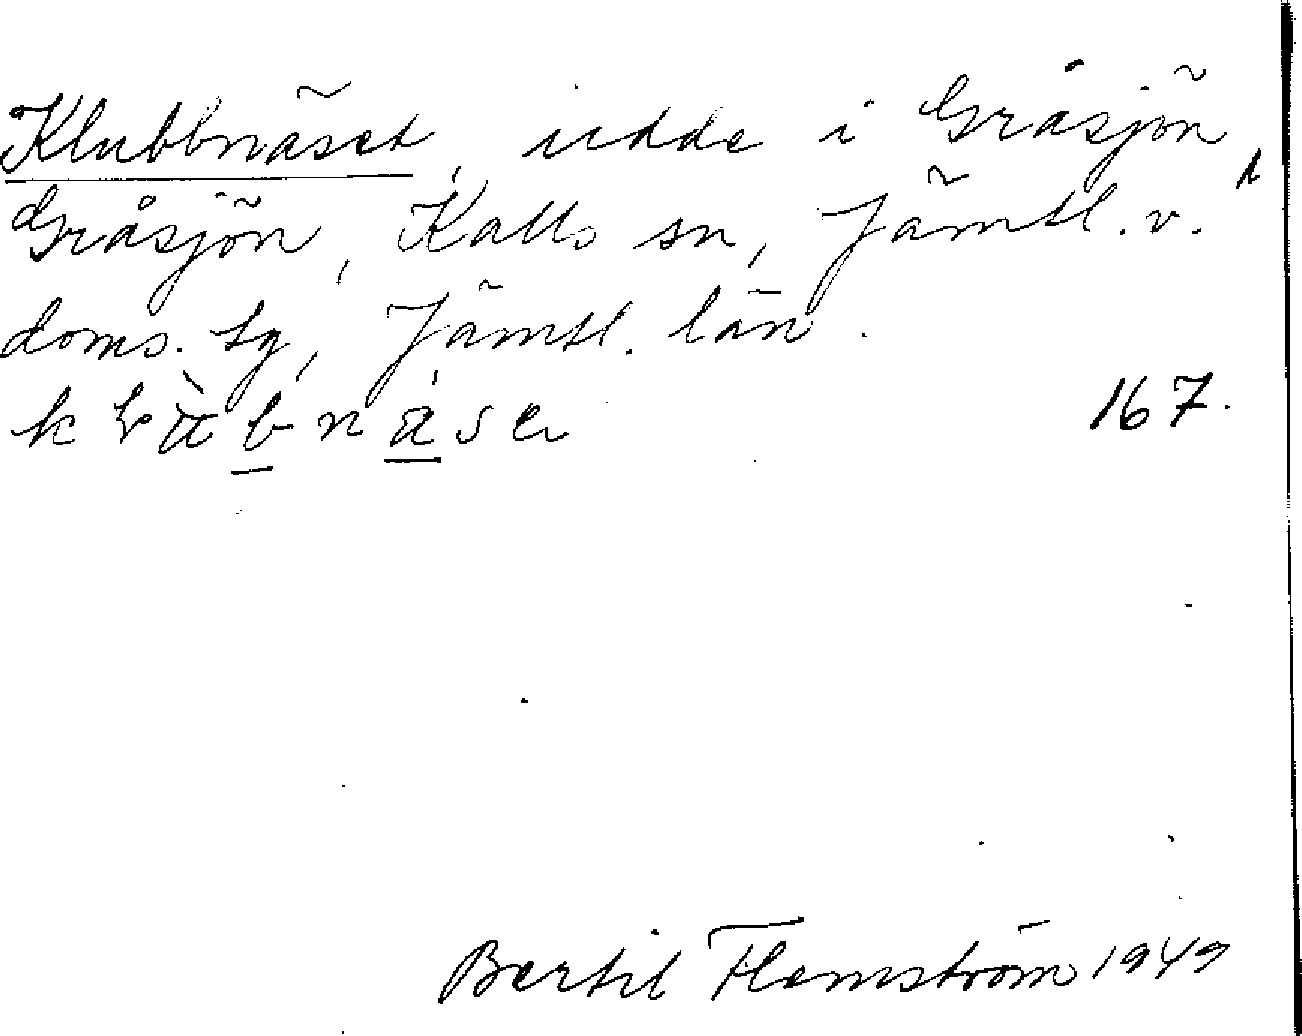 Klubbnäset, udde i Gråsjön,
Gråsjön, Kalls sn, Jämtl. v.
doms. tg, Jämtl. län.
167.
Bertil Flemström 1949